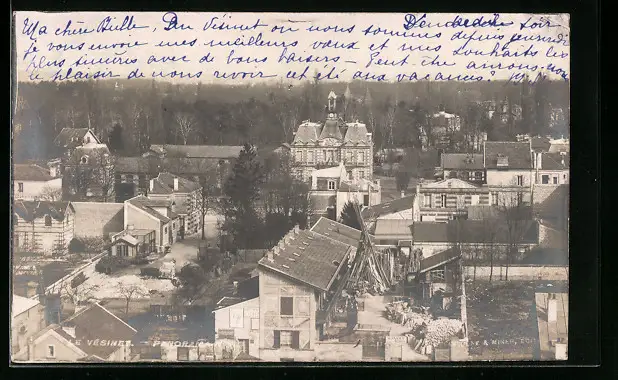 Ma chère Belle, Du Vésinet où nous sommes depuis jeudi soir
je vous envoie mes meilleurs vœux et mes souhaits les
plus sincères avec de bons baisers – Peut-être aurons-nous
le plaisir de nous revoir cet été aux vacances?
LE VÉSINET. – PANORAMA